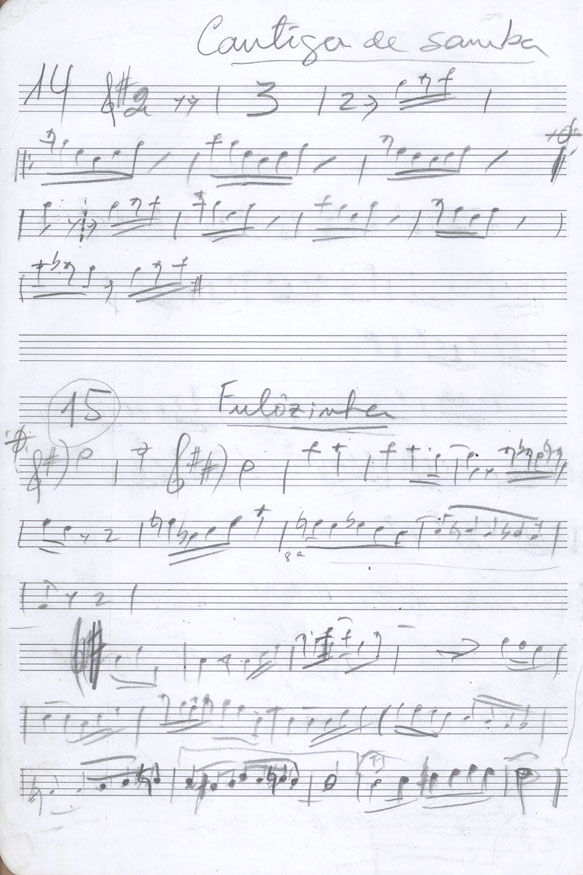 Cantiga de samba
14
2 3 2
15 Fulôzinha
2
8a
2